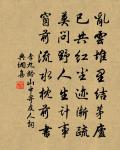 亂雲堆里結茅廬
已共紅塵跡漸疏
莫問野人生計事
窗前流水枕前書
李九齡山中寄友人詞
典詞集